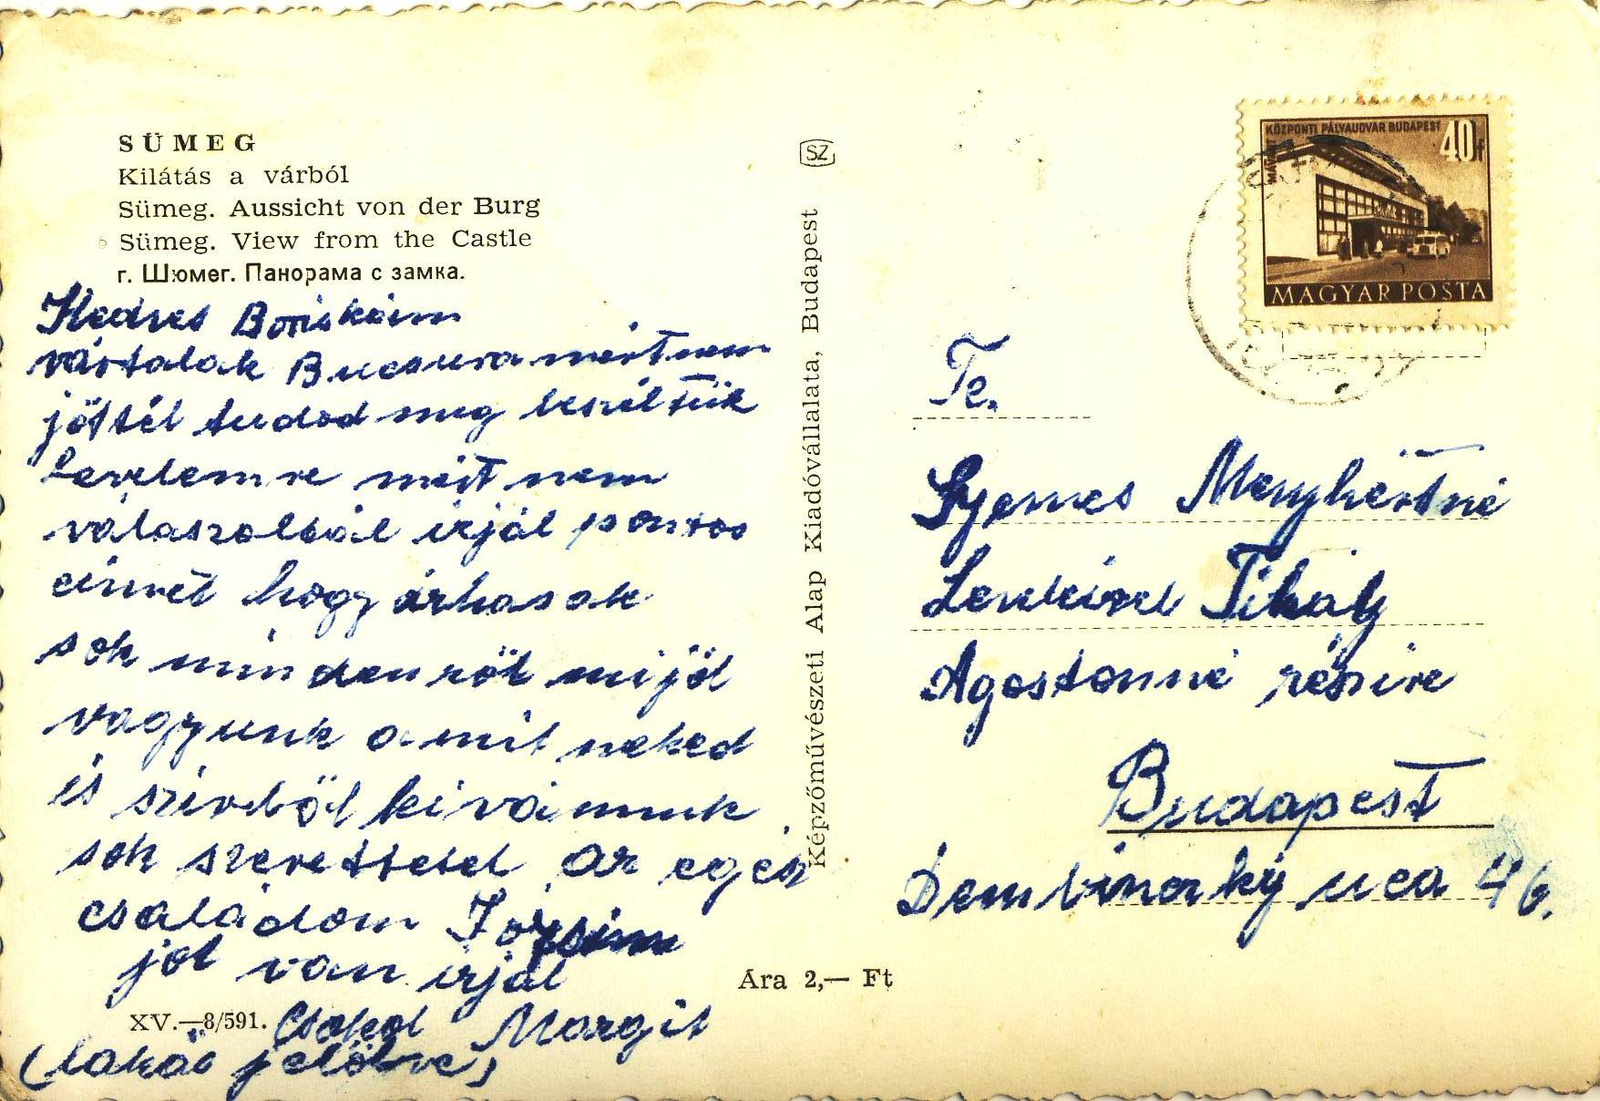 SÜMEG
Kilátás a várból
Sümeg. Aussicht von der Burg
Sümeg. View from the Castle
г. Шюмег. Панорама с замка.
Kedves Boriskám
vártalak Bucsura mértnem
jöttél tudod meg beszéltük
levelemre mért nem
válaszoltál irjál pontos
cimét hogy írhasak
sok mindenröl mi jól
vagyunk amit neked
is szivböl kivánunk
sok szeretettel az egész
családom
jól van irjál
Csókol Margit
(lakás jelölve)
XV.—8/591.
SZ
Képzőművészeti Alap Kiadóvállalata, Budapest
Ára 2,— Ft
KÖZPONTI PÁLYAUDVAR BUDAPEST
MÁVAUT
40f
MAGYAR POSTA
Te.
Gyenes Menyhértné
Lenkével Tihaly
Agostonné részire
Budapest
Dembinszky uca 46.